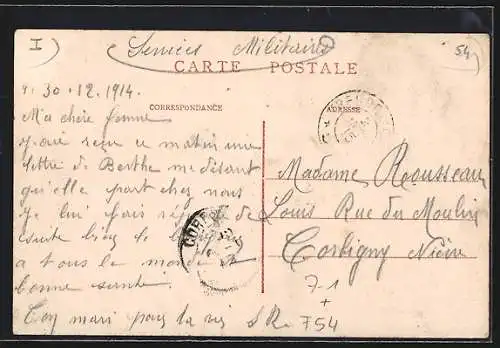 I
Services Militaires
54
CARTE POSTALE
30.12.1914.
CORRESPONDANCE
ADRESSE
Ma chère femme
J'ai reçu ce matin une
lettre de Berthe me disant
qu'elle part chez nous
je lui fais
suite
a tous le monde
bonne santé
Ton mari pour la vie
Madame Rousseau
Louis Rue du Moulin
Corbigny Nièvre
71
+
754